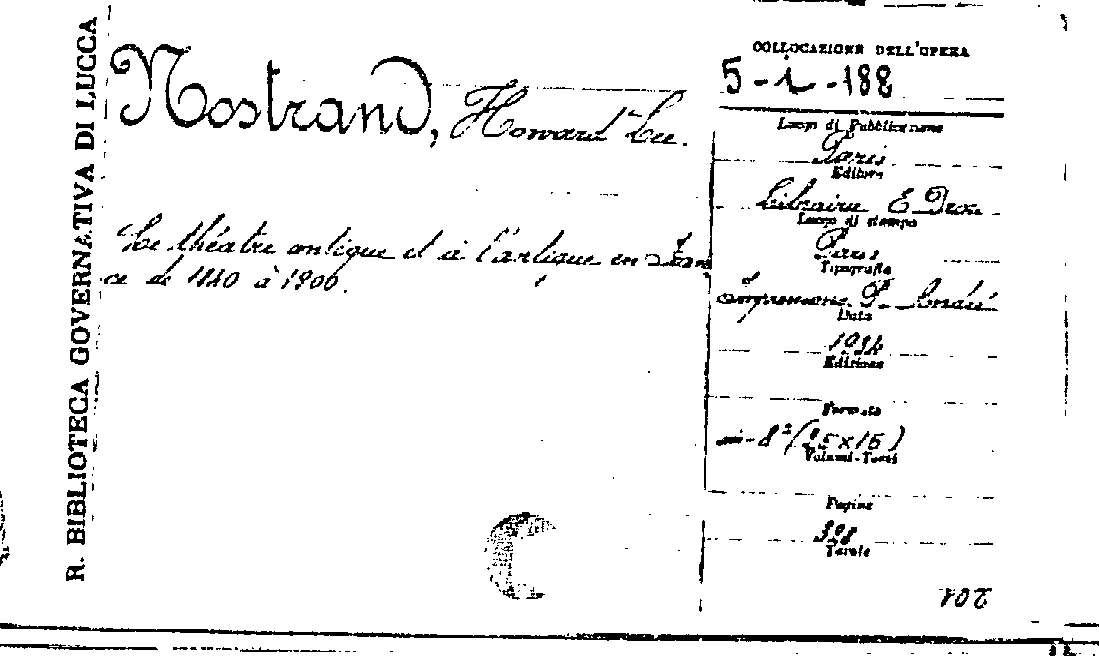 R. BIBLIOTECA GOVERNATIVA DI LUCCA
Nostrand, Howard Lee.
Le théatre antique et à l'antique en Fran
ce de 1840 à 1900.
COLLOCAZIONE DELL'OPERA
5-i-188
Luogo di Pubblicazione
Paris
Editore
Librairie E. Droz
Luogo di stampa
Paris
Tipografia
Imprimerie P. André
Data
1934
Edizione
Formato
in-8° (25x16)
Volumi-Tomi
Pagine
Tavole
201